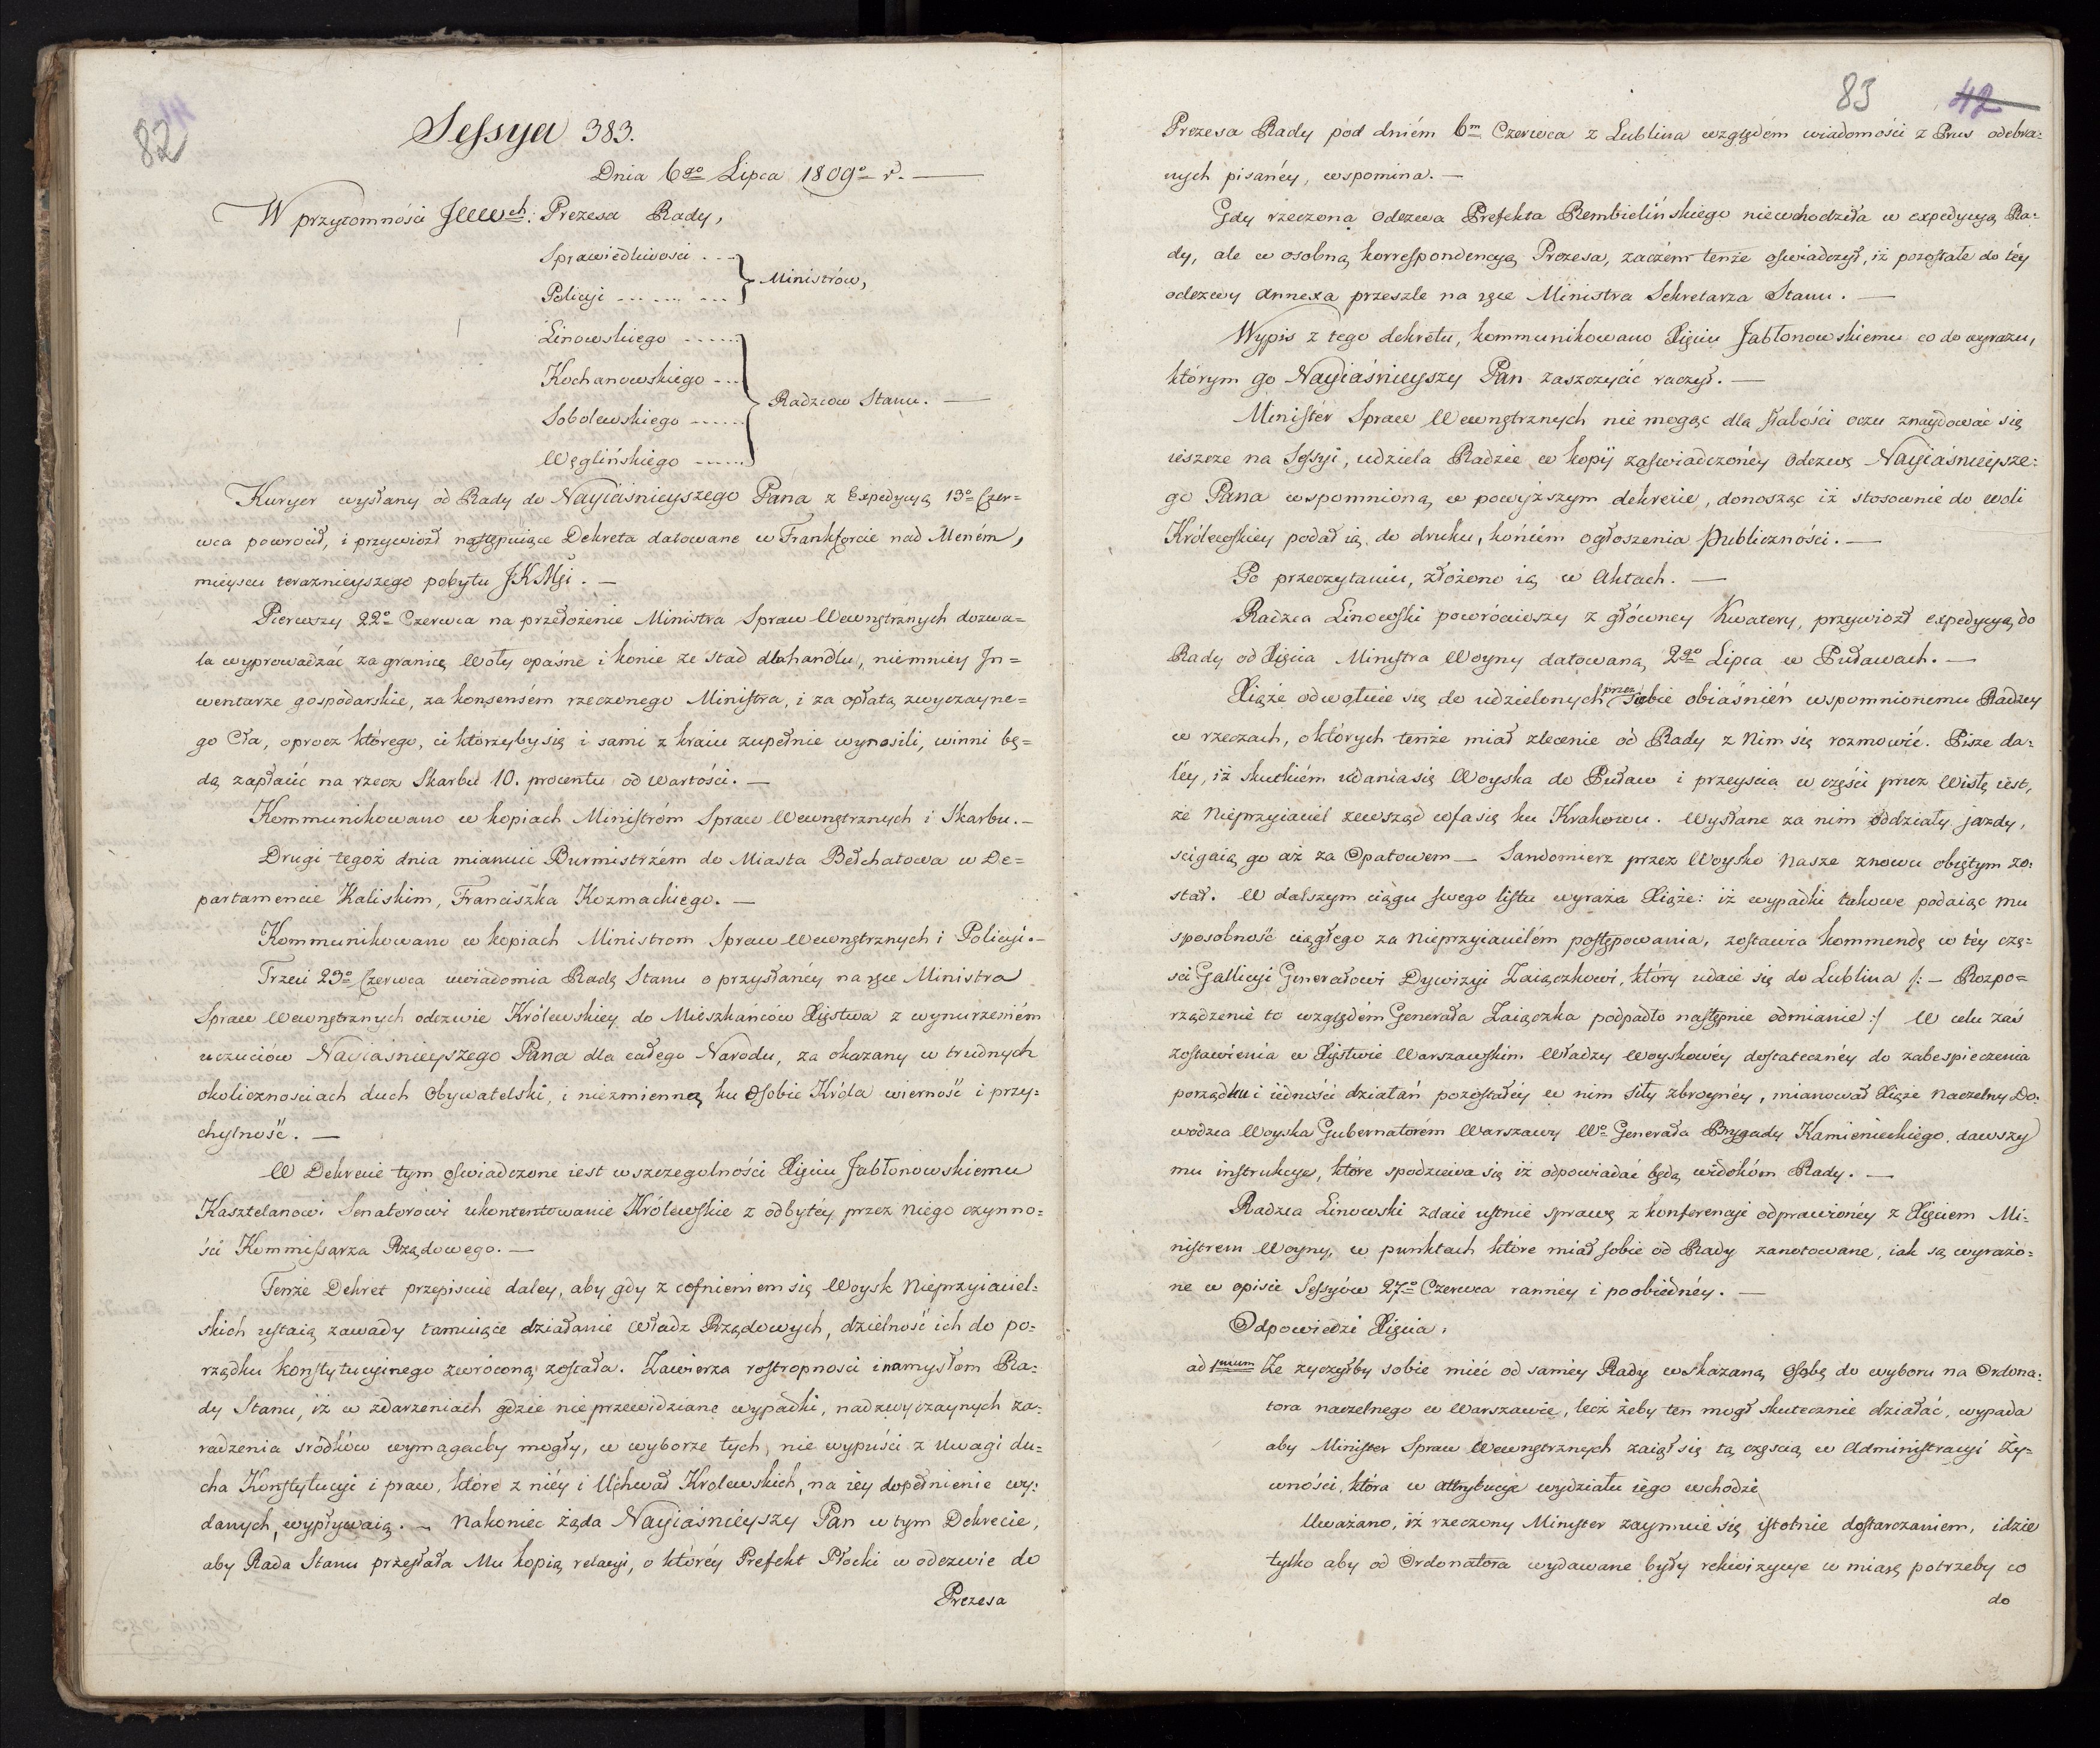 82
Sessya 383.
Dnia 6go Lipca 1809o r. —
W przytomności JWWch: Prezesa Rady,
Sprawiedliwości . . -
Policyi - - - - - - - - Ministrów,
Linowskiego - - - - - -
Kochanowskiego - - -
Sobolewskiego - - - - - - Radzców Stanu. —
Węglińskiego - - - - - -
Kuryer wysłany od Rady do Nayiaśnieyszego Pana z Expedycyą 13o Czer=
wca powrócił, i przywiozł następuiące Dekreta datowane w Frankforcie nad Meném,
mieyscu teraznieyszego pobytu JKMści. —
Pierwszy 22o Czerwca na przedłożenie Ministra Spraw Wewnętrznych dozwa=
la wyprowadzać za granicę Woły opaśne i konie ze stad dla handlu, niemniey In=
wentarze gospodarskie, za konsensém rzeczonego Ministra, i za opłatą zwyczayne=
go Cła, oprocz którego, ci którzyby się i sami z kraiu zupełnie wynosili, winni bę=
dą zapłacić na rzecz Skarbu 10. procentu od wartości. —
Kommunikowano w kopiach Ministróm Spraw Wewnętrznych i Skarbu. —
Drugi tegoż dnia mianuie Burmistrzém do Miasta Bełchatowa w De=
partamencie Kaliskim, Franciszka Kozmackiego. —
Kommunikowano w kopiach Ministrom Spraw Wewnętrznych i Policyi. —
Trzeci 23o Czerwca uwiadomia Radę Stanu o przysłanéy na ręce Ministra
Spraw Wewnętrznych odezwie Królewskiey do Mieszkańców Xięstwa z wynurzeniém
uczuciów Nayiaśnieyszego Pana dla całego Narodu, za okazany w trudnych
okolicznosciach duch Obywatelski, i niezmienną ku Osobie Króla wierność i przy=
chylność. —
W Dekrecie tym oświadczone iest w szczegolności Xięciu Jabłonowskiemu
Kasztelanowi Senatorowi ukontentowanie Królewskie z odbytéy przez niego czynno=
ści Kommissarza Rządowego. —
Tenże Dekret przepisuie daley, aby gdy z cofnieniem się Woysk Nieprzyiaciel=
skich ustaią zawady tamuiące działanie Władz Rządowych, dzielność ich do po=
rządku konstytucyinego zwróconą została. Zawierza rostropnosci i namysłom Ra=
dy Stanu, iż w zdarzeniach gdzie nieprzewidziane wypadki, nadzwyczaynych za=
radzenia śródków wymagaćby mogły, w wyborze tych, nie wypuści z uwagi du=
cha Konstytucyi i praw, które z niéy i Uchwał Krolewskich, na iey dopełnienie wy=
danych, wypływaią. — Nakoniec żąda Nayiaśniéyszy Pan w tym Dekrecie,
aby Rada Stanu przesłała Mu kopią relacyi, o któréy Prefekt Płocki w odezwie do
Prezesa
83 42
Prezesa Rady pod dniém 6m Czerwca z Lublina względém wiadomości z Prus odebra=
nych pisanéy, wspomina. —
Gdy rzeczona Odezwa Prefekta Rembielińskiego niewchodziła w expedycyą Ra=
dy, ale w osobną korrespondencyą Prezesa, zaczém tenże oświadczył, iż pozostałe do téy
odezwy annexa przeszle na ręce Ministra Sekretarza Stanu. —
Wypis z tego dekretu, kommunikowano Xięciu Jabłonowskiemu co do wyrazu,
którym go Nayiaśnieyszy Pan zaszczycić raczył. —
Minister Spraw Wewnętrznych nie mogąc dla słabości oczu znaydować się
ieszcze na Sessyi, udziela Radzie w kopij zaświadczonéy Odezwę Nayiaśnieysze=
go Pana wspomnioną w powyższym dekrecie, donosząc iż stosownie do woli
Królewskiey podał ią do druku, końcém ogłoszenia Publiczności. —
Po przeczytaniu, złożono ią w Aktach. —
Radzca Linowski powróciwszy z główney Kwatery, przywiozł expedycyą do
Rady od Xięcia Ministra Woyny datowaną 2go Lipca w Puławach. —
Xiąże odwołuie się do udzielonych przez siebie obiaśnień wspomnionemu Radzcy
w rzeczach, o których tenże miał zlecenie od Rady z Nim się rozmowić. Pisze da=
léy, iż skutkiém udania się Woyska do Puław i przeyscia w części przez Wisłę iest,
że Nieprzyiaciel zewsząd cofa się ku Krakowu. Wysłane za nim oddziały jazdy,
scigaią go aż za Opatowem — Sandomierz przez Woysko Nasze znowu obiętym zo=
stał. W dalszym ciągu swego listu wyraża Xiąże: iż wypadki takowe podaiąc mu
sposobność ciągłego za Nieprzyiacielém postępowania, zostawia kommendę w téy czę=
sci Gallicyi Generałowi Dywizyi Zaiączkowi, który udaie się do Lublina /: — Rozpo=
rządzenie to względém Generała Zaiączka podpadło następnie odmianie :/ W celu zaś
zostawienia w Xięstwie Warszawskim Władzy Woyskowéy dostatecznéy do zabespieczenia
porządku i iedności działań pozostałéy w nim siły zbroynéy, mianował Xiąże Naczelny Do=
wodzca Woyska Gubernatorém Warszawy Wo Generała Brygady Kamienieckiego, dawszy
mu instrukcye, które spodziewa się iż odpowiadać będą widokóm Rady. —
Radzca Linowski zdaie ustnie sprawę z konferencyi odprawionéy z Xięciem Mi=
nistrem Woyny, w punktach które miał sobie od Rady zanotowane, iak są wyrażo=
ne w opisie Sessyów 27o Czerwca rannéy i poobiednéy. —
Odpowiedzi Xięcia:
ad 1mum Że życzyłby sobie mieć od saméy Rady wskazaną Osobę do wyboru na Ordona=
tora naczelnego w Warszawie, lecz żeby ten mogł skutecznie działać, wypada
aby Minister Spraw Wewnętrznych zaiął się tą częscią w Administracyi Ży=
wności, która w attrybucye wydziału iego wchodzi.
Uważano, iż rzeczony Minister zaymuie się istotnie dostarczaniem, idzie
tylko aby od Ordonatora wydawane były rekwizycye w miarę potrzeby co
do